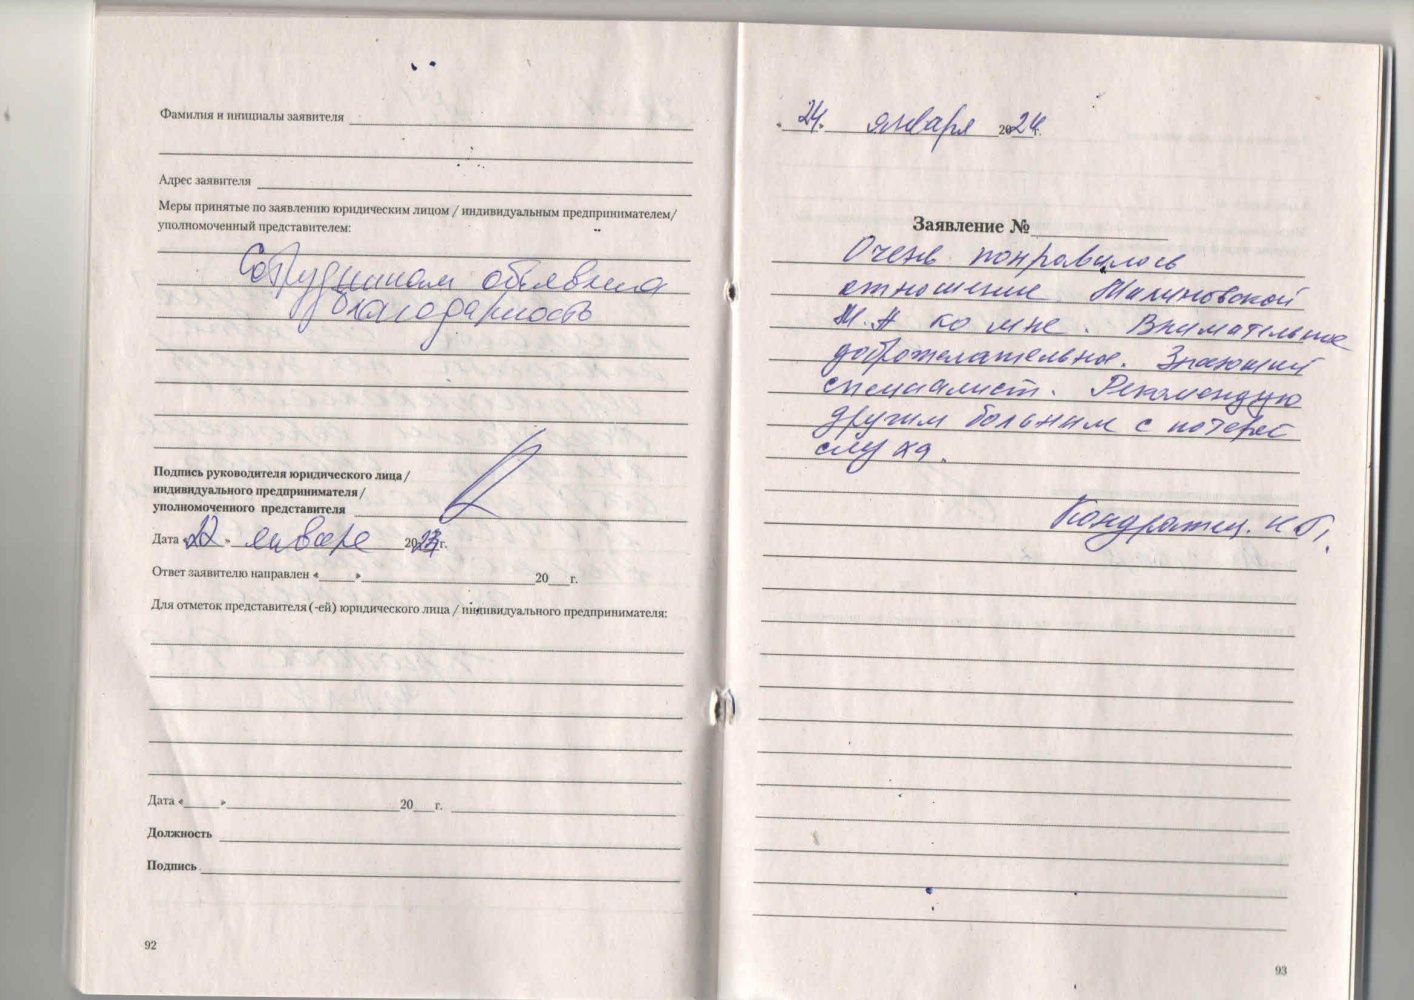 Фамилия и инициалы заявителя
Адрес заявителя
Меры принятые по заявлению юридическим лицом / индивидуальным предпринимателем/
уполномоченный представителем:
Сотрудникам объявлена
благодарность
Подпись руководителя юридического лица /
индивидуального предпринимателя /
уполномоченного представителя
Дата « » января 20 г.
Ответ заявителю направлен « » 20 г.
Для отметок представителя (-ей) юридического лица / индивидуального предпринимателя:
Дата « » 20 г.
Должность
Подпись
92
24 января 2024 г.
Заявление №
Очень понравилось
отношение Малиновской
М.А ко мне. Внимательное
доброжелательное. Знающий
специалист. Рекомендую
другим больным с потерей
слуха.
Кондратец. Н.П.
93